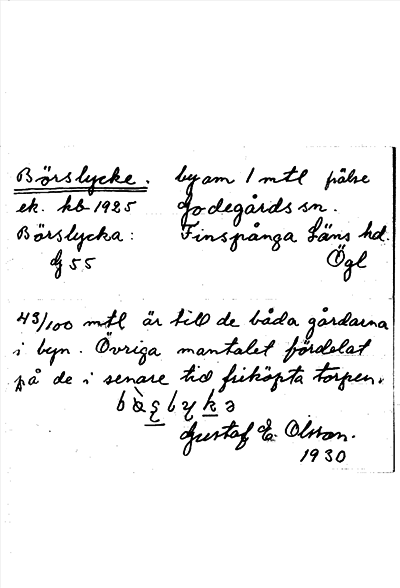 Börslycke. by om 1 mtl frälse
ek. kb 1925 Godegårds sn.
Börslycka: Finspånga Läns hd.
G 55 Ögl
43/100 mtl är till de båda gårdarna
i byn. Övriga mantalet fördelat
på de i senare tid friköpta torpen.
Gustaf E. Olsson.
1930